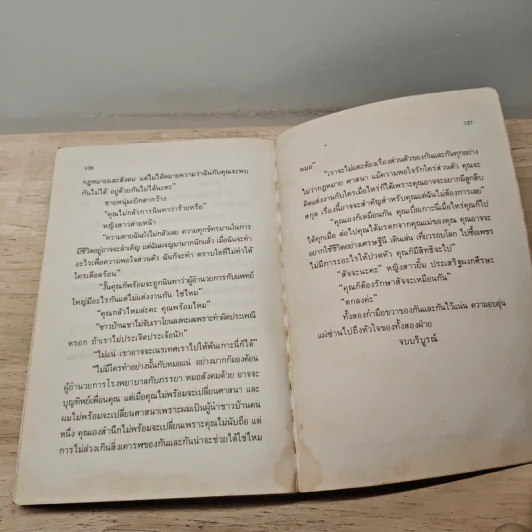 526
กฎหมายและสังคม แต่ไม่ได้หมายความว่าฉันกับคุณจะพบ
กันไม่ได้ อยู่ด้วยกันไม่ได้นะคะ"
ชายหนุ่มเบิกตากว้าง
"คุณไม่กลัวการนินทาว่าร้ายหรือ"
หญิงสาวส่ายหน้า
"ความตายฉันยังไม่กลัวเลย ความทุกข์ทรมานในการ
มีชีวิตอยู่อาจจะสำคัญ แต่ฉันเจญมามากนักแล้ว เมื่อฉันจะทำ
อะไรเพื่อความพอใจส่วนตัว ฉันก็จะทำ ตราบใดที่ไม่ทำให้
ใครเดือดร้อน"
"งั้นคุณก็พร้อมจะถูกนินทาว่าผู้อำนวยการกับแพทย์
ใหญ่มีอะไรกันแต่ไม่แต่งงานกัน ใช่ไหม"
"คุณกลัวไหมล่ะคะ คุณพร้อมไหม"
"ชาวบ้านเขาไม่จับเราโยนลงทะเลเพราะทำผิดประเพณี
หรอก ถ้าเราไม่ประเจิดประเจ้อนัก"
"ไม่แน่ เขาอาจจะเนรเทศเราไปให้พ้นเกาะนี้ก็ได้"
"ไม่มีใครทำอย่างนั้นกับหมอแน่ อย่างมากก็มองค้อน
ผู้อำนวยการโรงพยาบาลกับภรรยา หมอสังคมด้วย อาจจะ
บุญทิพย์เพื่อนคุณ แต่เมื่อคุณไม่พร้อมจะเปลี่ยนศาสนา และ
ผมไม่พร้อมจะเปลี่ยนศาสนาเพราะผมเป็นผู้นำชาวบ้านคน
หนึ่ง คุณเองสำนึกไม่พร้อมจะเปลี่ยนเพราะคุณไม่นับถือ แต่
การไม่ล่วงเกินสิ่งเคารพของกันและกันน่าจะช่วยได้ใช่ไหม
527
หมอ"
"เราจะไม่แตะต้องเรื่องส่วนตัวของกันและกันทุกอย่าง
ไม่ว่ากฎหมาย ศาสนา แม้มีความพอใจรักใคร่ส่วนตัว คุณจะ
คิดแต่งงานกับใครเมื่อไหร่ก็ได้เพราะคุณอาจจะอยากมีลูกสืบ
สกุล เรื่องนี้อาจจะสำคัญสำหรับคุณแต่ฉันไม่ต้องการเลย"
"คุณเองก็เหมือนกัน คุณเบื่อเกาะนี้เมื่อไหร่คุณก็ไป
ได้ทุกเมื่อ ต่อไปคุณได้มรดกจากคุณแม่ของคุณ คุณอาจจะ
อยากใช้ชีวิตอย่างเศรษฐินี เดินเล่น เที่ยวรอบโลก ไปซื้อเพชร
ไม่มีภาระอะไรให้ปวดหัว คุณก็มีสิทธิจะไป"
"สัจจะนะคะ" หญิงสาวยิ้ม ประเสริฐผงกศีรษะ
"คุณก็ต้องรักษาสัจจะเหมือนกัน"
"ตกลงค่ะ"
ทั้งสองกำมือขวาของกันและกันไว้แน่น ความอบอุ่น
แผ่ซ่านไปถึงหัวใจของทั้งสองฝ่าย
จบบริบูรณ์